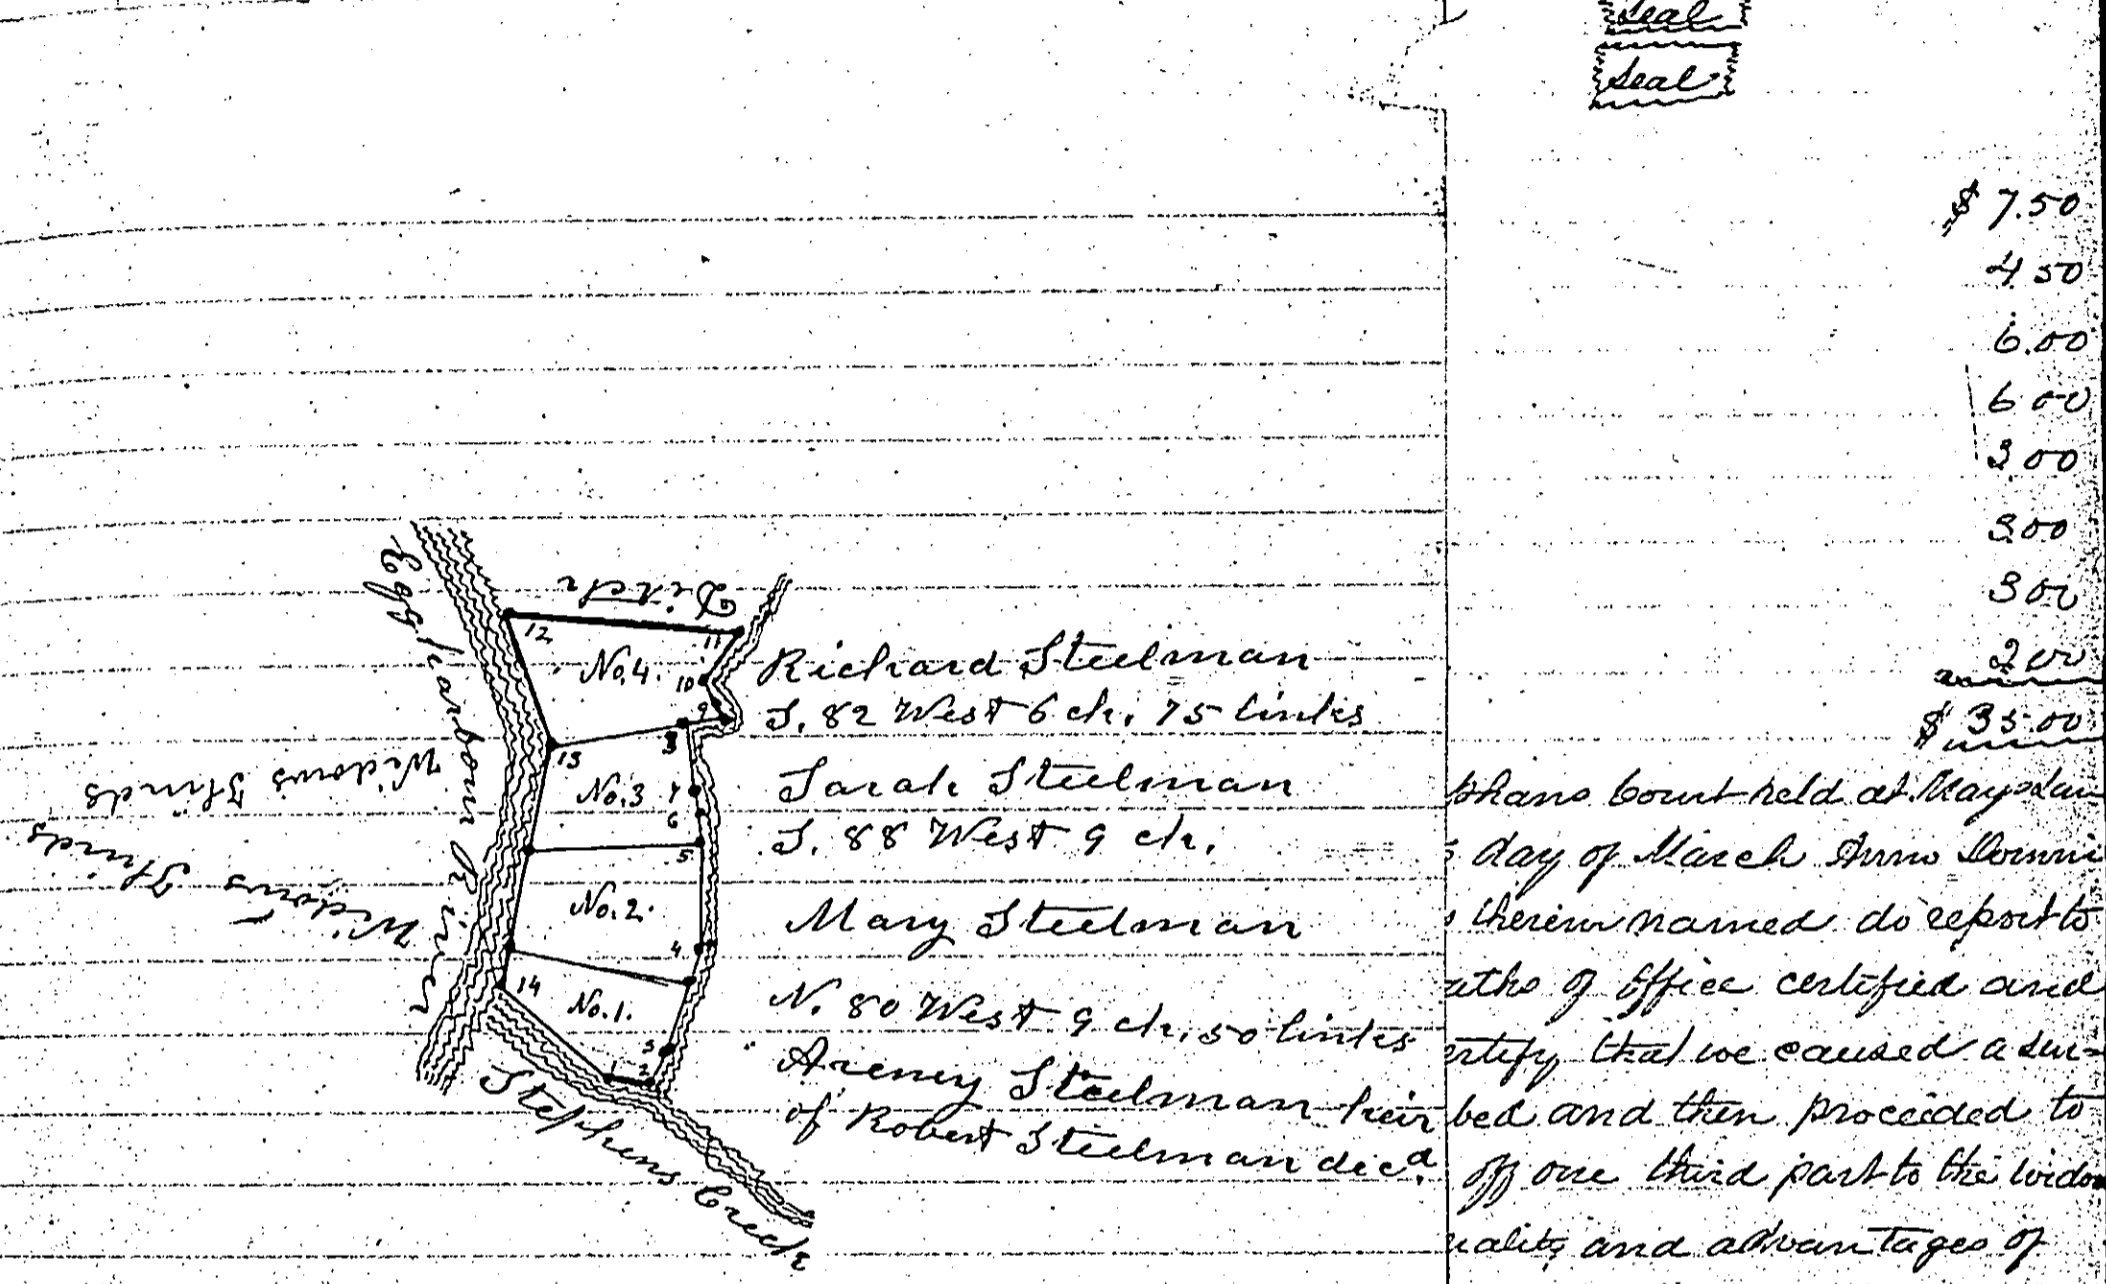 Seal
Seal
$ 7.50
4 50
6.00
6 00
3 00
3.00
3 00
2 00
$ 35.00
Ditch
Egg Harbour River
Widows Thirds
Widows Thirds
Stephens Creek
12
11
No. 4.
10
9
8
13
No. 3
7
6
5
No. 2.
4
14
No. 1.
3
1
2
Richard Steelman
S. 82 West 6 ch. 75 links
Sarah Steelman
S. 88 West 9 ch.
Mary Steelman
N. 80 West 9 ch. 50 links
Steelman heir
of Robert Steelman decd.
phans Court held at Mays Lan
day of March Anno Domini
therein named do report to
aths of office certified and
ertify that we caused a sur-
bed and then proceeded to
off one third part to the widow
uality and advantages of